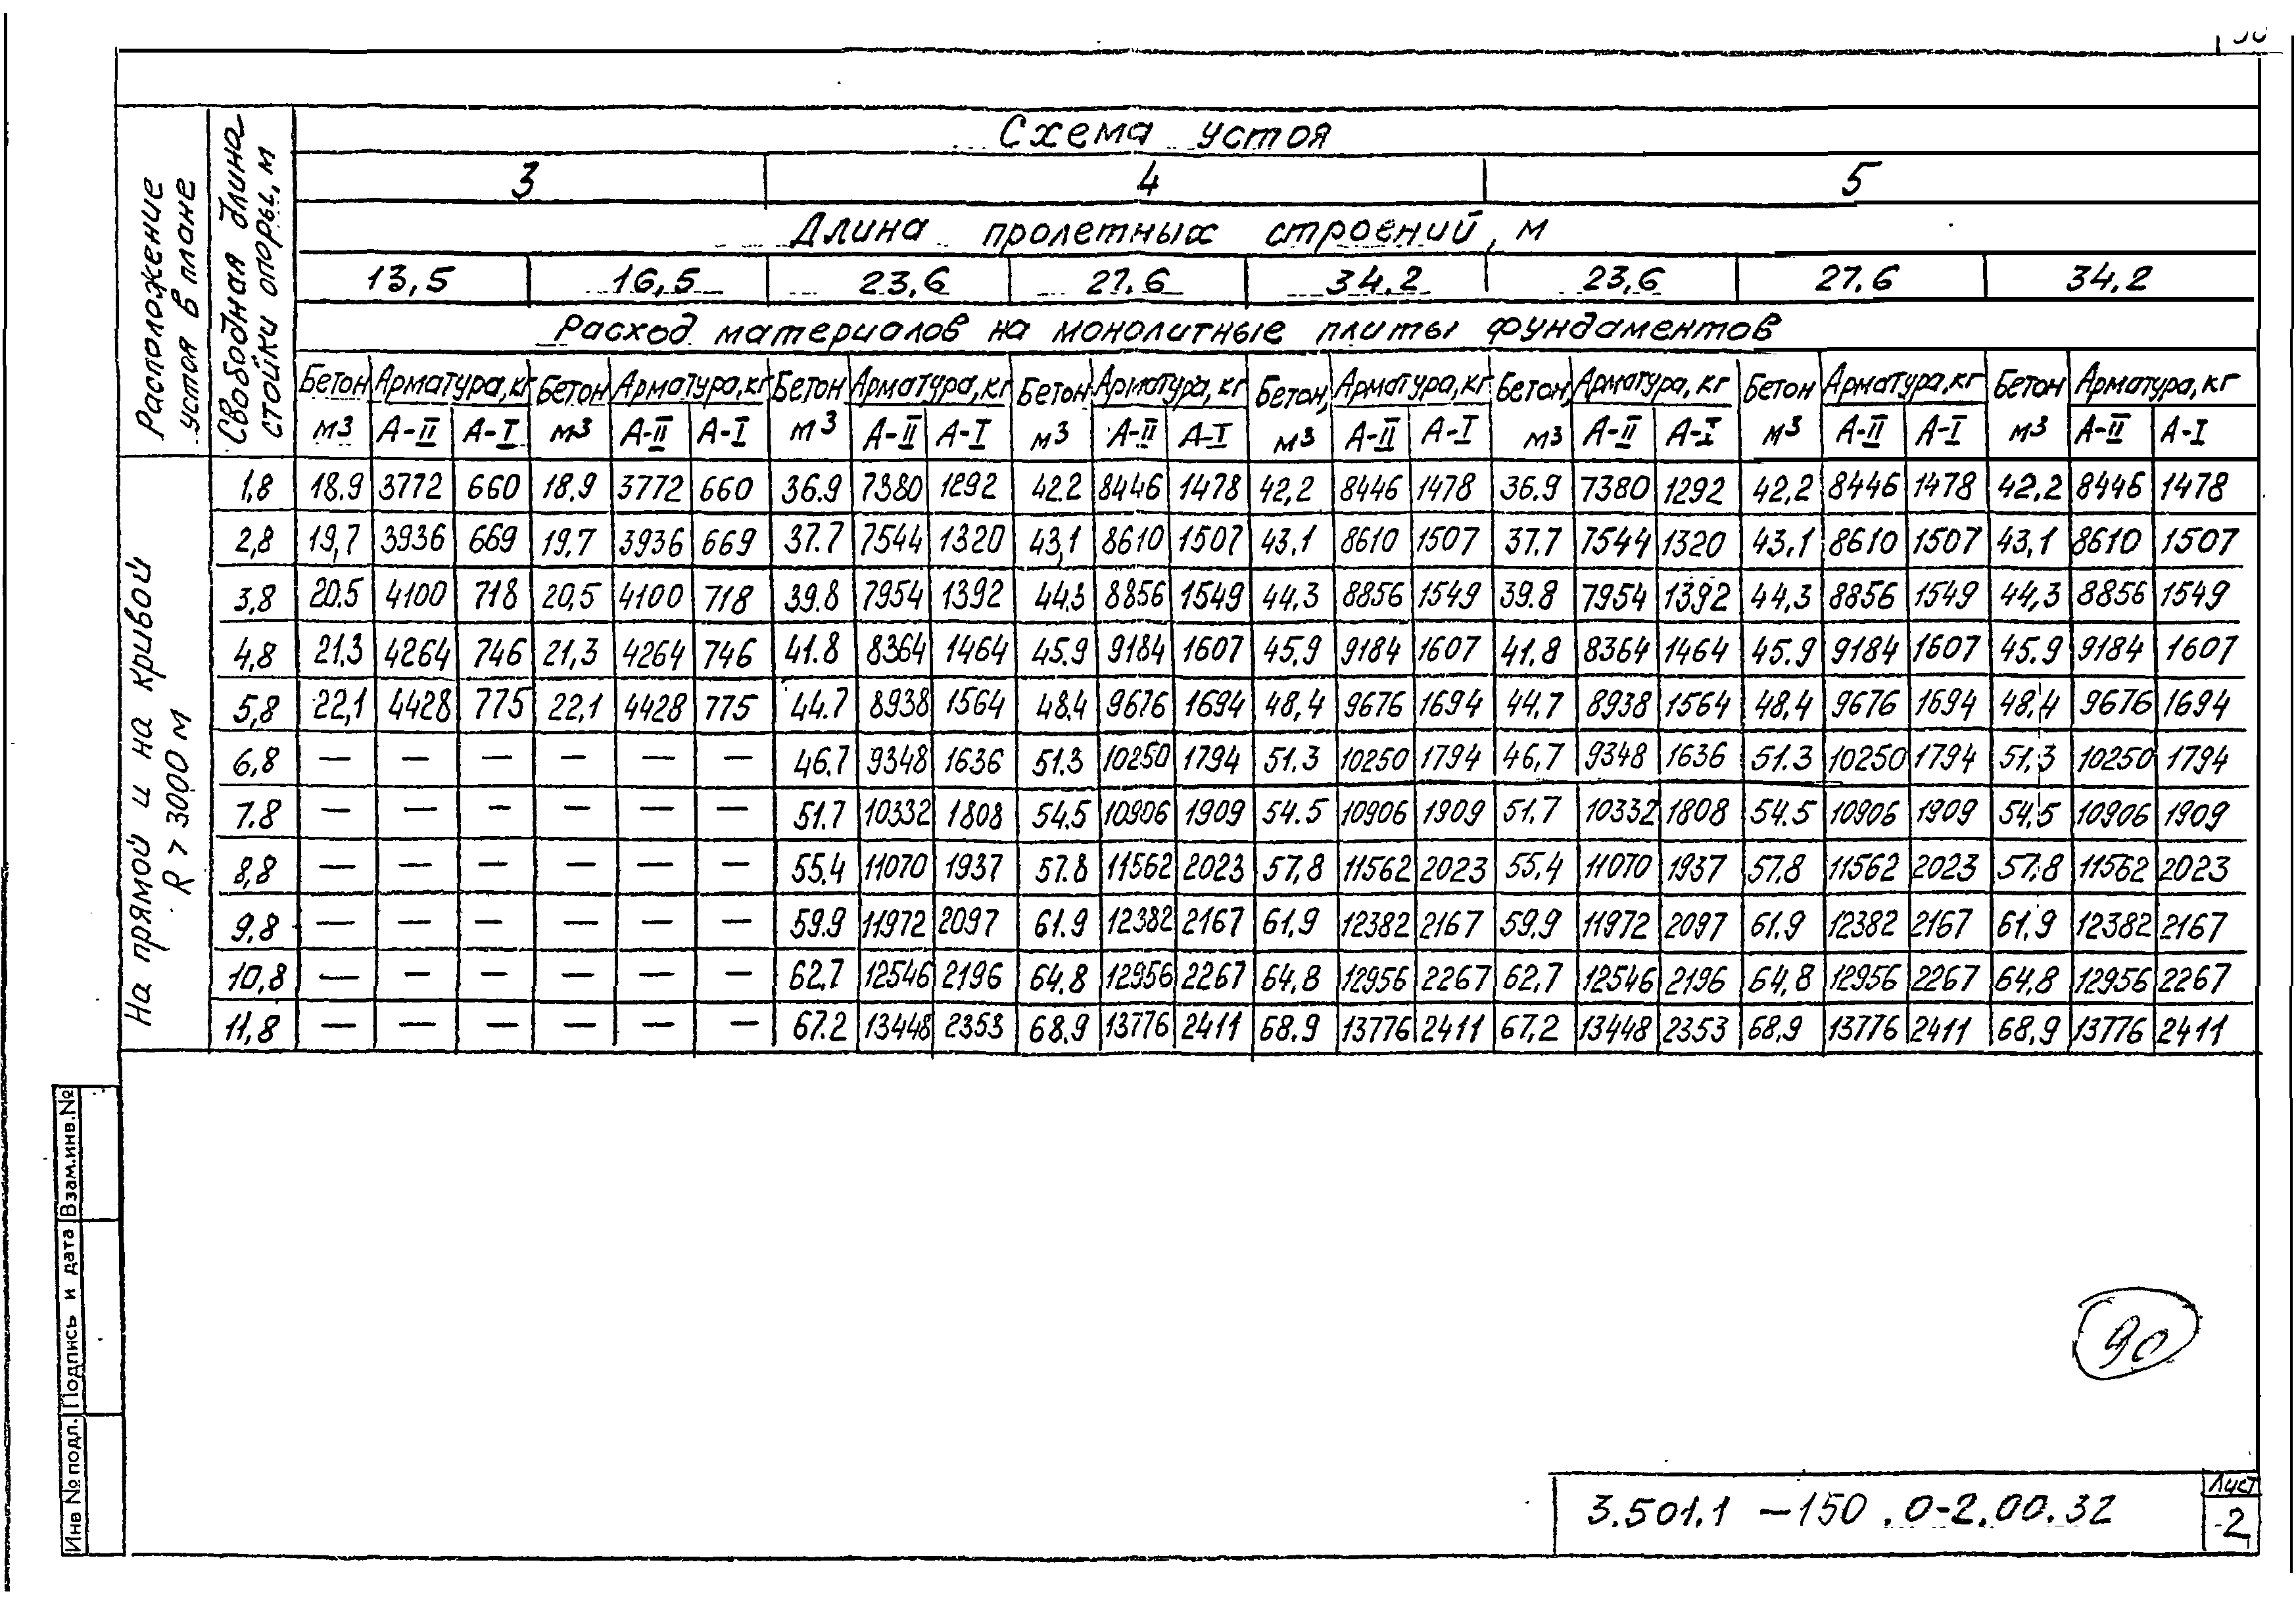 Расположение устоя в плане
Свободная длина стойки опоры, м
Схема устоя
3 4 5
Длина пролетных строений, м
13,5 16,5 23,6 27,6 34,2 23,6 27,6 34,2
Расход материалов на монолитные плиты фундаментов
Бетон Арматура,кг Бетон Арматура,кг Бетон Арматура,кг Бетон Арматура,кг Бетон, Арматура,кг Бетон, Арматура,кг Бетон Арматура,кг Бетон Арматура,кг
м3 А-II А-I м3 А-II А-I м3 А-II А-I м3 А-II А-I м3 А-II А-I м3 А-II А-I м3 А-II А-I м3 А-II А-I
На прямой и на кривой R > 3000 м
1,8 18.9 3772 660 18,9 3772 660 36.9 7380 1292 42.2 8446 1478 42,2 8446 1478 36.9 7380 1292 42,2 8446 1478 42,2 8446 1478
2,8 19,7 3936 669 19,7 3936 669 37.7 7544 1320 43,1 8610 1507 43,1 8610 1507 37.7 7544 1320 43,1 8610 1507 43,1 8610 1507
3,8 20.5 4100 718 20,5 4100 718 39.8 7954 1392 44.3 8856 1549 44.3 8856 1549 39.8 7954 1392 44,3 8856 1549 44,3 8856 1549
4,8 21,3 4264 746 21,3 4264 746 41.8 8364 1464 45.9 9184 1607 45.9 9184 1607 41.8 8364 1464 45.9 9184 1607 45.9 9184 1607
5,8 22,1 4428 775 22,1 4428 775 44.7 8938 1564 48.4 9676 1694 48,4 9676 1694 44,7 8938 1564 48,4 9676 1694 48,4 9676 1694
6,8 — — — — — — 46.7 9348 1636 51.3 10250 1794 51.3 10250 1794 46,7 9348 1636 51.3 10250 1794 51,3 10250 1794
7.8 — — — — — — 51.7 10332 1808 54.5 10906 1909 54.5 10906 1909 51.7 10332 1808 54.5 10906 1909 54,5 10906 1909
8,8 — — — — — — 55.4 11070 1937 57.8 11562 2023 57,8 11562 2023 55,4 11070 1937 57.8 11562 2023 57,8 11562 2023
9,8 — — — — — — 59.9 11972 2097 61.9 12382 2167 61,9 12382 2167 59.9 11972 2097 61.9 12382 2167 61,9 12382 2167
10,8 — — — — — — 62.7 12546 2196 64.8 12956 2267 64,8 12956 2267 62,7 12546 2196 64,8 12956 2267 64,8 12956 2267
11,8 — — — — — — 67.2 13448 2353 68.9 13776 2411 68.9 13776 2411 67,2 13448 2353 68,9 13776 2411 68,9 13776 2411
Взам.инв.№
Подпись и дата
Инв № подл.
90
3.501.1 —150 .0-2.00.32
Лист
2